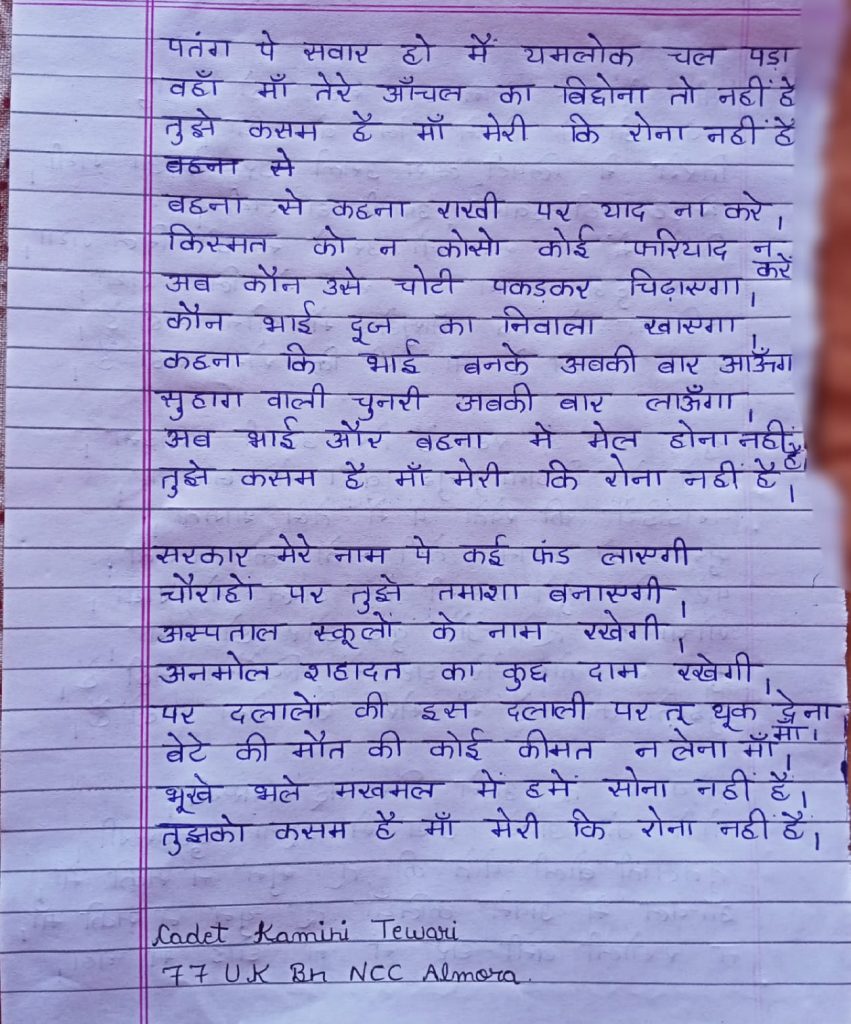 पतंग पे सवार हो मैं यमलोक चल पड़ा
वहाँ माँ तेरे आँचल का बिछोना तो नहीं है
तुझे कसम है माँ मेरी कि रोना नहीं है
बहना से
बहना से कहना राखी पर याद ना करे।
किस्मत को न कोसो कोई फरियाद न करें
अब कौन उसे चोटी पकड़कर चिढ़ाएगा।
कौन भाई दूज का निवाला खाएगा।
कहना कि भाई बनके अबकी बार आऊँगा
सुहाग वाली चुनरी अबकी बार लाऊँगा।
अब भाई और बहना में मेल होना नहीं है।
तुझे कसम है माँ मेरी कि रोना नहीं है।
सरकार मेरे नाम पे कई फंड लाएगी
चौराहों पर तुझे तमाशा बनाएगी।
अस्पताल स्कूलों के नाम रखेगी।
अनमोल शहादत का कुछ दाम रखेगी।
पर दलालों की इस दलाली पर तू थूक देना माँ।
बेटे की मौत की कोई कीमत न लेना माँ।
भूखे भले मखमल में हमें सोना नहीं है।
तुझको कसम है माँ मेरी कि रोना नहीं है।
Cadet Kamini Tewari
77 UK Bn NCC Almora.